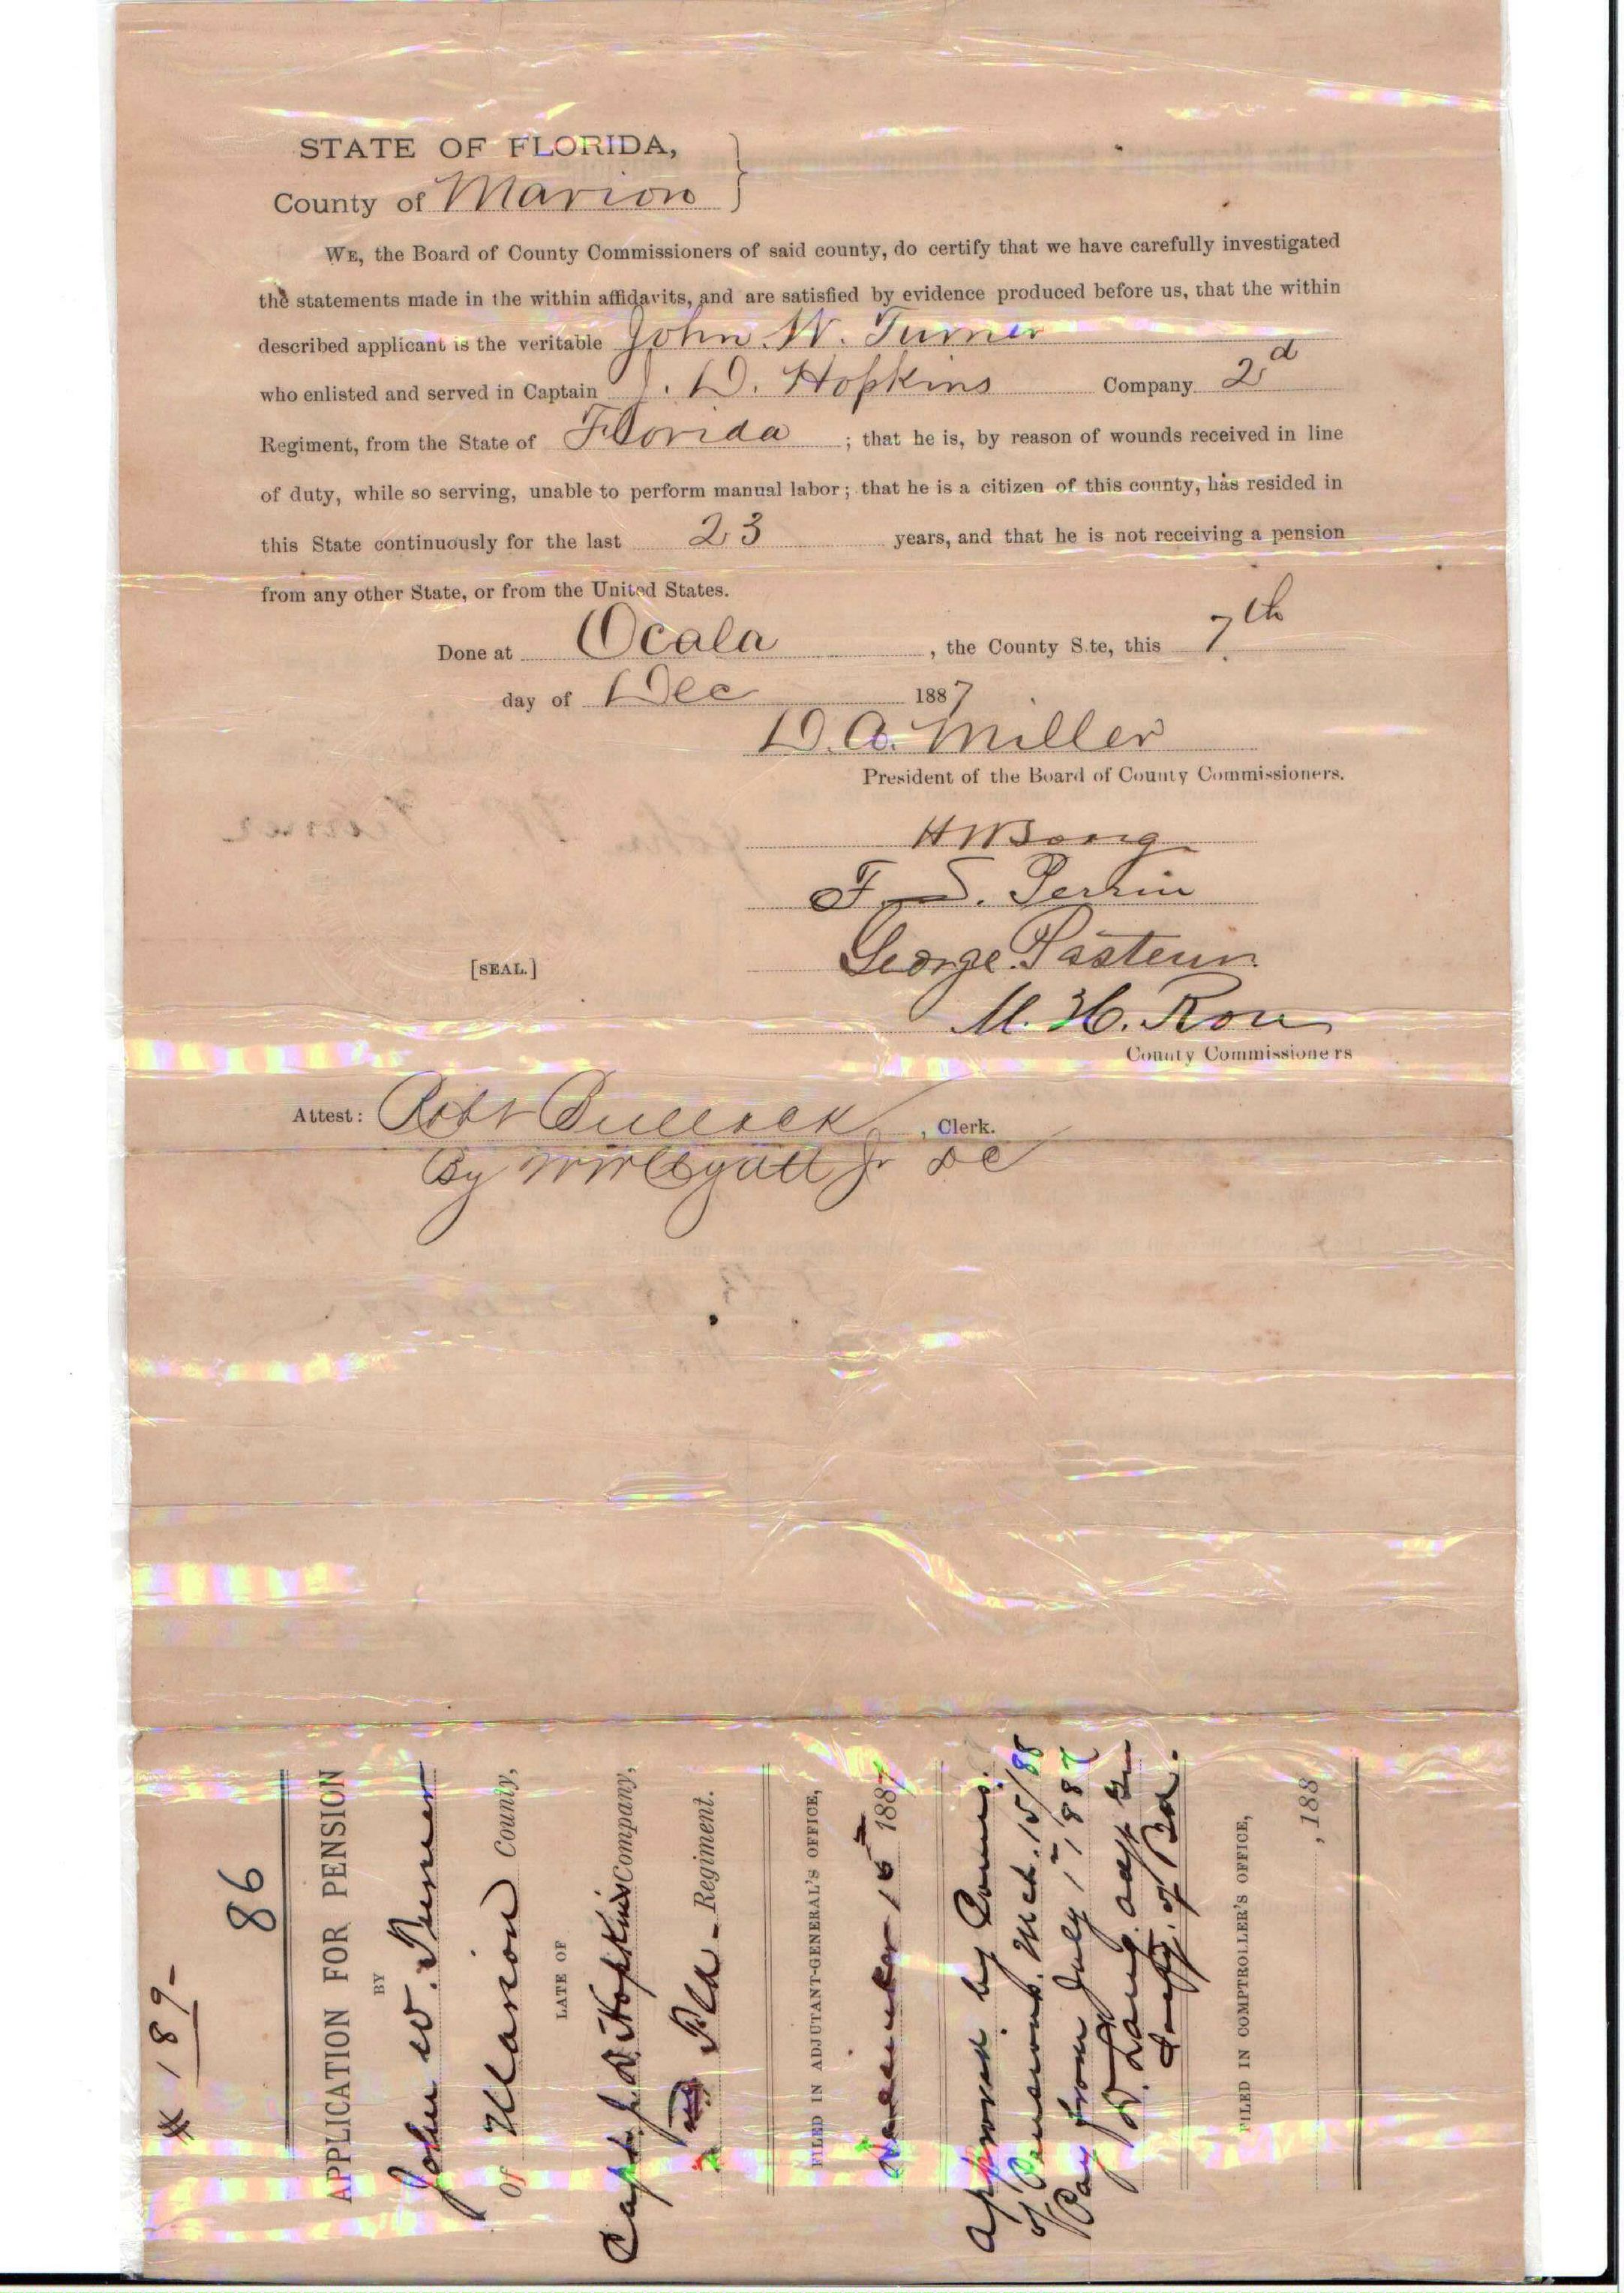 STATE OF FLORIDA,
County of Marion
WE, the Board of County Commissioners of said county, do certify that we have carefully investigated
the statements made in the within affidavits, and are satisfied by evidence produced before us, that the within
described applicant is the veritable John W. Turner
who enlisted and served in Captain J. D. Hopkins Company 2d
Regiment, from the State of Florida ; that he is, by reason of wounds received in line
of duty, while so serving, unable to perform manual labor; that he is a citizen of this county, has resided in
this State continuously for the last 23 years, and that he is not receiving a pension
from any other State, or from the United States.
Done at Ocala , the County S te, this 7th
day of Dec 1887
D. A. Miller
President of the Board of County Commissioners.
H W
F. S. Perrin
George Pasteur
[SEAL.]
M. H. Rou
County Commissioners
Attest: Robt Bullock , Clerk.
By Jr DC
# 189
86
APPLICATION FOR PENSION
BY
John W. Turner
Of Marion County,
LATE OF
Capt. J. D. Hopkins Company,
2nd Fla Regiment.
FILED IN ADJUTANT-GENERAL'S OFFICE,
December 1887
approved by Comrs.
of Pensions. Mch. 15/88
Pay from July 1st 1887
D. Lang adjt Gen
of Bd.
FILED IN COMPTROLLER'S OFFICE,
, 188